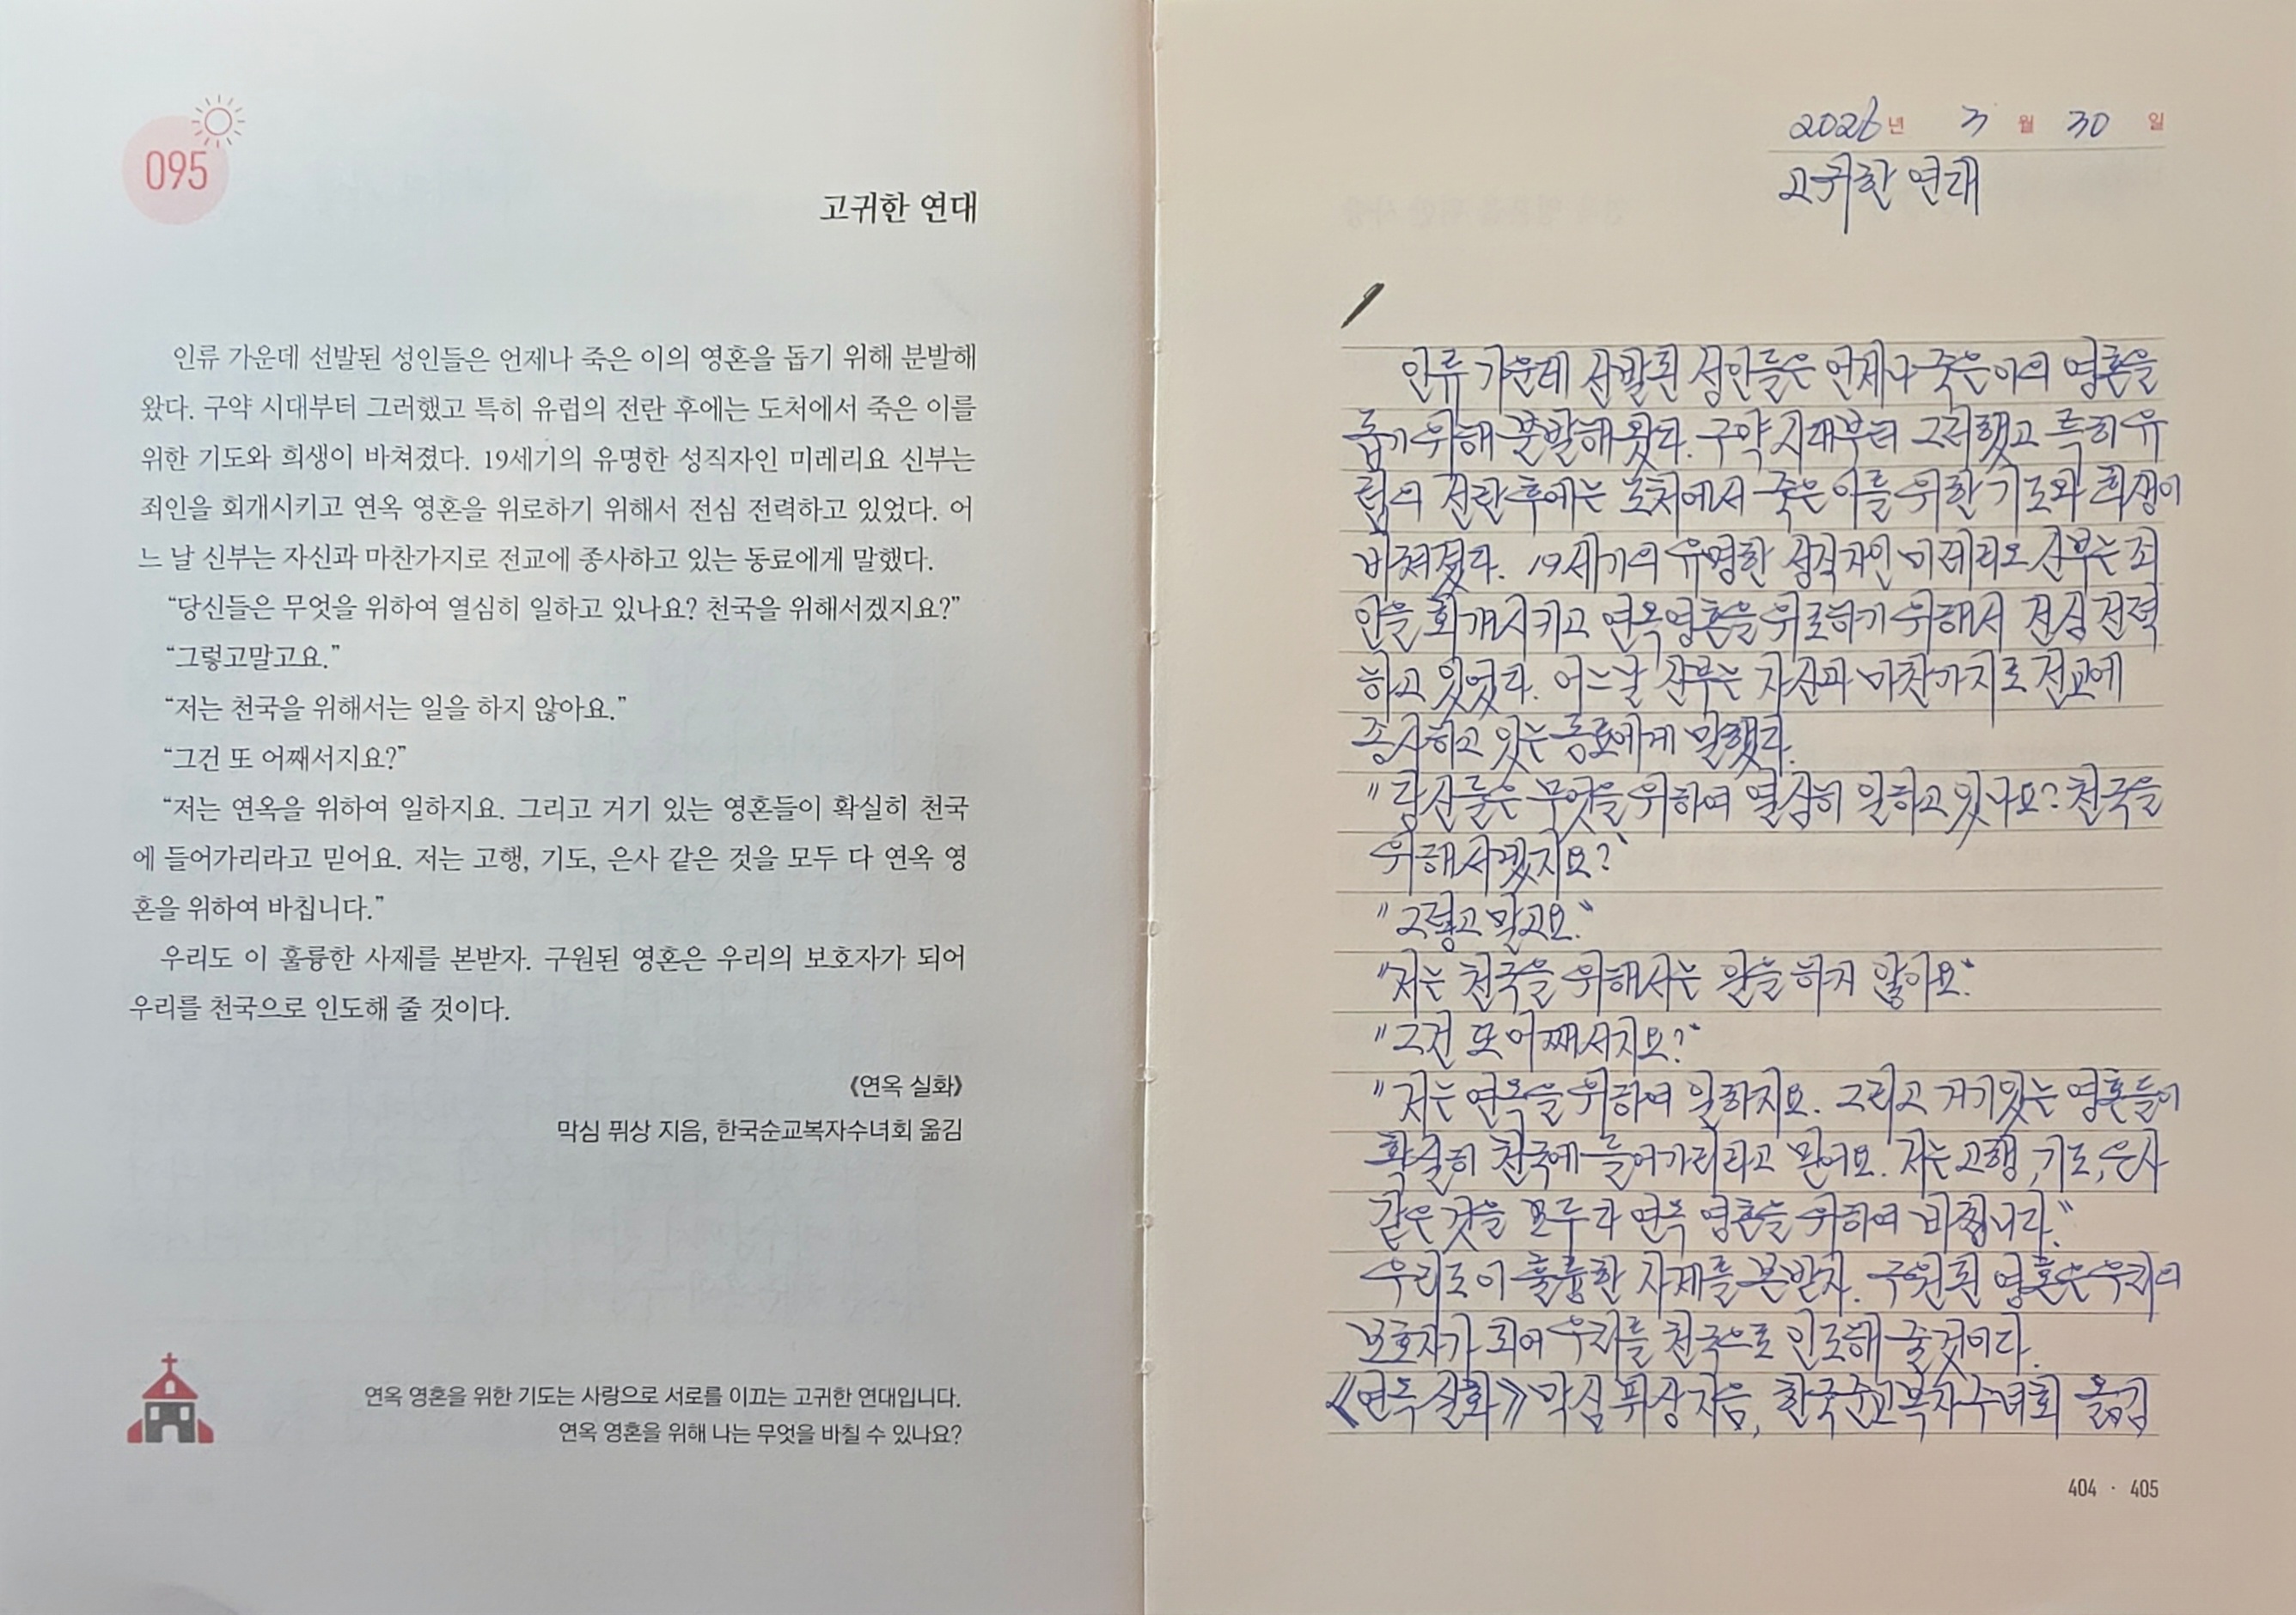 095
고귀한 연대
인류 가운데 선발된 성인들은 언제나 죽은 이의 영혼을 돕기 위해 분발해
왔다. 구약 시대부터 그러했고 특히 유럽의 전란 후에는 도처에서 죽은 이를
위한 기도와 희생이 바쳐졌다. 19세기의 유명한 성직자인 미레리요 신부는
죄인을 회개시키고 연옥 영혼을 위로하기 위해서 전심 전력하고 있었다. 어
느 날 신부는 자신과 마찬가지로 전교에 종사하고 있는 동료에게 말했다.
“당신들은 무엇을 위하여 열심히 일하고 있나요? 천국을 위해서겠지요?”
“그렇고말고요.”
“저는 천국을 위해서는 일을 하지 않아요.”
“그건 또 어째서지요?”
“저는 연옥을 위하여 일하지요. 그리고 거기 있는 영혼들이 확실히 천국
에 들어가리라고 믿어요. 저는 고행, 기도, 은사 같은 것을 모두 다 연옥 영
혼을 위하여 바칩니다.”
우리도 이 훌륭한 사제를 본받자. 구원된 영혼은 우리의 보호자가 되어
우리를 천국으로 인도해 줄 것이다.
《연옥 실화》
막심 퓌상 지음, 한국순교복자수녀회 옮김
연옥 영혼을 위한 기도는 사랑으로 서로를 이끄는 고귀한 연대입니다.
연옥 영혼을 위해 나는 무엇을 바칠 수 있나요?
2026년 3월 30일
고귀한 연대
인류 가운데 선발된 성인들은 언제나 죽은 이의 영혼을
돕기 위해 분발해 왔다. 구약 시대부터 그러했고 특히 유
럽의 전란 후에는 도처에서 죽은 이를 위한 기도와 희생이
바쳐졌다. 19세기의 유명한 성직자인 미레리요 신부는 죄
인을 회개시키고 연옥 영혼을 위로하기 위해서 전심 전력
하고 있었다. 어느날 신부는 자신과 마찬가지로 전교에
종사하고 있는 동료에게 말했다.
"당신들은 무엇을 위하여 열심히 일하고 있나요? 천국을
위해서겠지요?"
"그렇고 말고요."
"저는 천국을 위해서는 일을 하지 않아요."
"그건 또 어째서지요?"
"저는 연옥을 위하여 일하지요. 그리고 거기있는 영혼들이
확실히 천국에 들어가리라고 믿어요. 저는 고행, 기도, 은사
같은 것을 모두 다 연옥 영혼을 위하여 바칩니다."
우리도 이 훌륭한 사제를 본받자. 구원된 영혼은 우리의
보호자가 되어 우리를 천국으로 인도해 줄것이다.
《연옥 실화》 막심 퓌상 지음, 한국순교복자수녀회 옮김
404 · 405